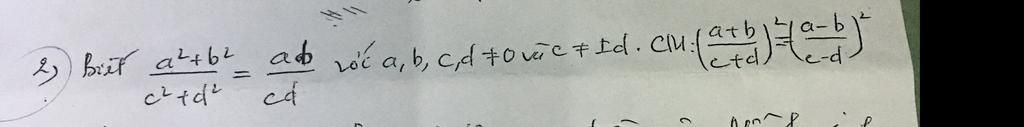 2) Biết \frac{a^2+b^2}{c^2+d^2} = \frac{ab}{cd} với a, b, c, d ≠ 0 và c ≠ ±d. CM: \left(\frac{a+b}{c+d}\right)^2 = \left(\frac{a-b}{c-d}\right)^2